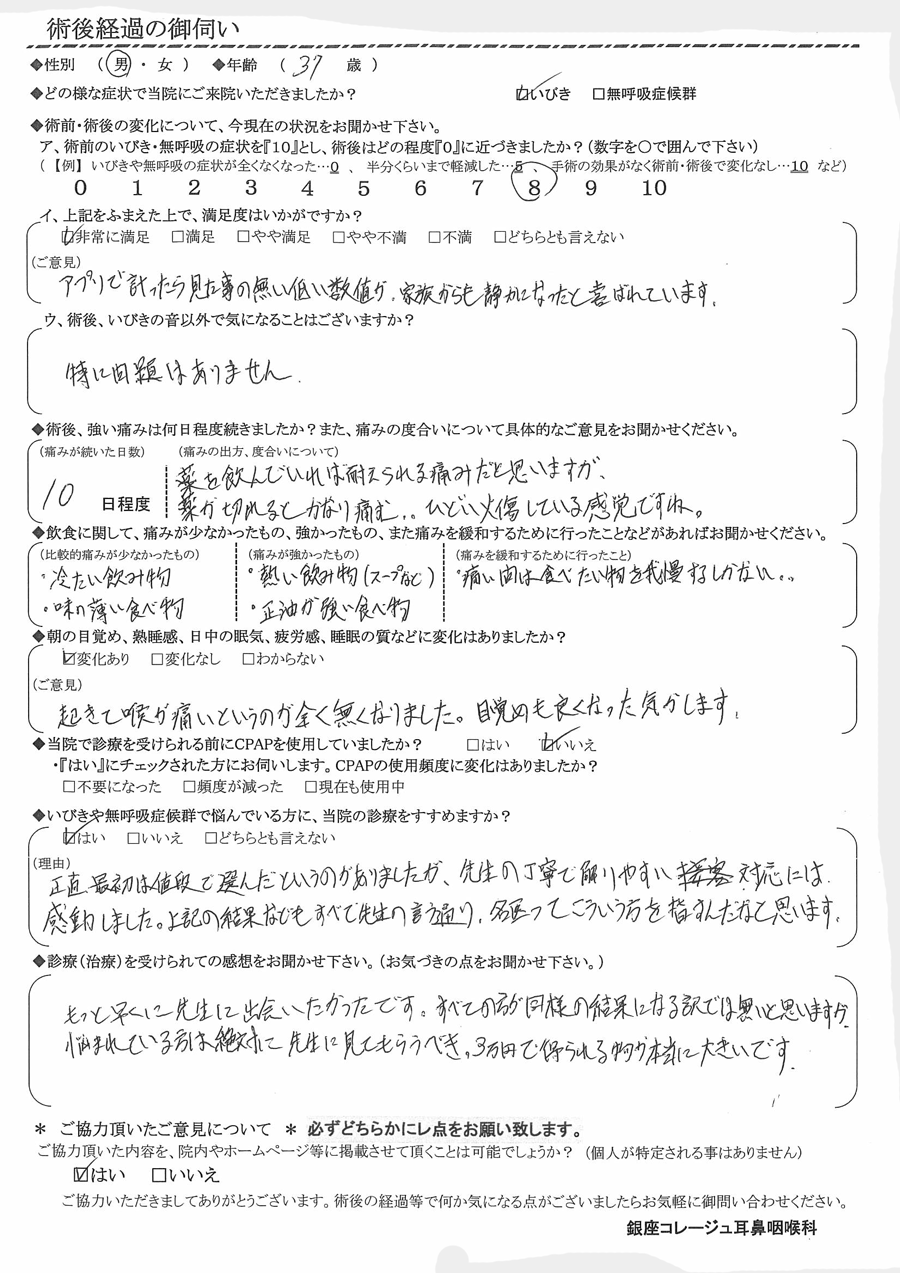 術後経過の御伺い
◆性別 （ 男 ・ 女 ） ◆年齢 （ 37 歳 ）
◆どの様な症状で当院にご来院いただきましたか？ ☑いびき □無呼吸症候群
◆術前・術後の変化について、今現在の状況をお聞かせ下さい。
ア、術前のいびき・無呼吸の症状を『10』とし、術後はどの程度『0』に近づきましたか？（数字を〇で囲んで下さい）
（【例】 いびきや無呼吸の症状が全くなくなった…0 、 半分くらいまで軽減した…5 、 手術の効果がなく術前・術後で変化なし…10 など）
0 1 2 3 4 5 6 7 8 9 10
イ、上記をふまえた上で、満足度はいかがですか？
☑非常に満足 □満足 □やや満足 □やや不満 □不満 □どちらとも言えない
（ご意見）
アプリで計ったら見た事の無い低い数値が、家族からも静かになったと喜ばれています。
ウ、術後、いびきの音以外で気になることはございますか？
特に問題はありません.
◆術後、強い痛みは何日程度続きましたか？また、痛みの度合いについて具体的なご意見をお聞かせください。
（痛みが続いた日数） （痛みの出方、度合いについて）
薬を飲んでいれば耐えられる痛みだと思いますが、
10 日程度 薬が切れるとかなり痛む.. ひどい火傷している感覚ですね。
◆飲食に関して、痛みが少なかったもの、強かったもの、また痛みを緩和するために行ったことなどがあればお聞かせください。
（比較的痛みが少なかったもの） （痛みが強かったもの） （痛みを緩和するために行ったこと）
・冷たい飲み物 ・熱い飲み物(スープなど) ・痛い内は食べたい物を我慢するしかない..
・味の薄い食べ物 ・正油が強い食べ物
◆朝の目覚め、熟睡感、日中の眠気、疲労感、睡眠の質などに変化はありましたか？
☑変化あり □変化なし □わからない
（ご意見）
起きて喉が痛いというのが全く無くなりました。目覚めも良くなった気がします。
◆当院で診療を受けられる前にCPAPを使用していましたか？ □はい ☑いいえ
・『はい』にチェックされた方にお伺いします。CPAPの使用頻度に変化はありましたか？
□不要になった □頻度が減った □現在も使用中
◆いびきや無呼吸症候群で悩んでいる方に、当院の診療をすすめますか？
☑はい □いいえ □どちらとも言えない
（理由）
正直最初は値段で選んだというのがありましたが、先生の丁寧で解りやすい 対応には
感動しました。上記の結果などもすべて先生の言う通り、名医ってこういう方を指すんだなと思います。
◆診療（治療）を受けられての感想をお聞かせ下さい。（お気づきの点をお聞かせ下さい。）
もっと早くに先生に出会いたかったです。すべての方が同様の結果になる訳では無いと思いますが、
悩まれている方は絶対に先生に見てもらうべき。3万円で得られる物が本当に大きいです.
＊ ご協力頂いたご意見について ＊ 必ずどちらかにレ点をお願い致します。
ご協力頂いた内容を、院内やホームページ等に掲載させて頂くことは可能でしょうか？ （個人が特定される事はありません）
☑はい □いいえ
ご協力いただきましてありがとうございます。術後の経過等で何か気になる点がございましたらお気軽に御問い合わせください。
銀座コレージュ耳鼻咽喉科